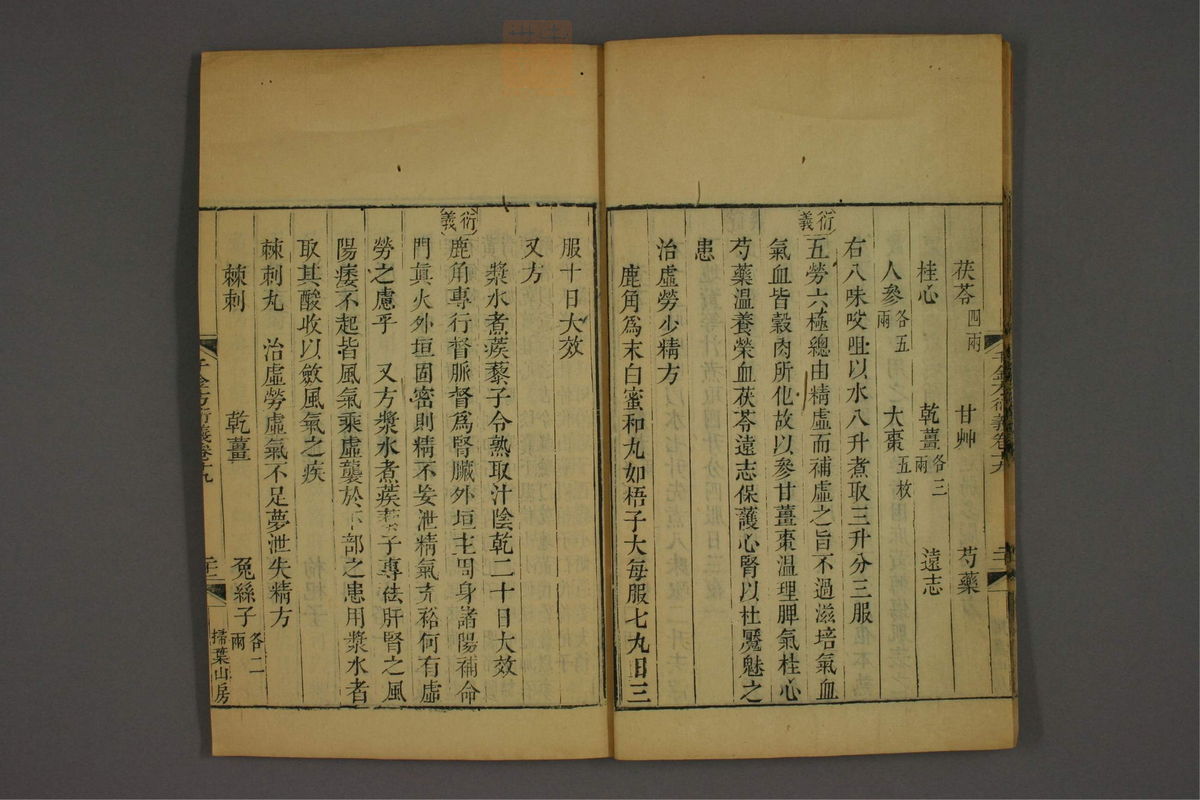 茯苓四兩 甘艸 芍藥
桂心 乾薑各三兩 遠志
人參各五兩 大棗五枚
右八味㕮咀以水八升煮取三升分三服
衍義 五勞六極總由精虛而補虛之旨不過滋培氣血
氣血皆穀肉所化故以參甘薑棗溫理脾氣桂心
芍藥溫養榮血茯苓遠志保護心腎以杜魘魅之
患
治虛勞少精方
鹿角爲末白蜜和丸如梧子大每服七丸日三
服十日大效
又方
漿水煮蒺藜子令熟取汁陰乾二十日大效
衍義 鹿角專行督脈督爲腎臟外垣主周身諸陽補命
門真火外垣固密則精不妄泄精氣充裕何有虛
勞之慮乎 又方漿水煮蒺藜子專祛肝腎之風
陽痿不起皆風氣乘虛襲於下部之患用漿水者
取其酸收以斂風氣之疾
棘刺丸 治虛勞虛氣不足夢泄失精方
棘刺 乾薑 兔絲子各二兩
千金方衍義卷十九 掃葉山房